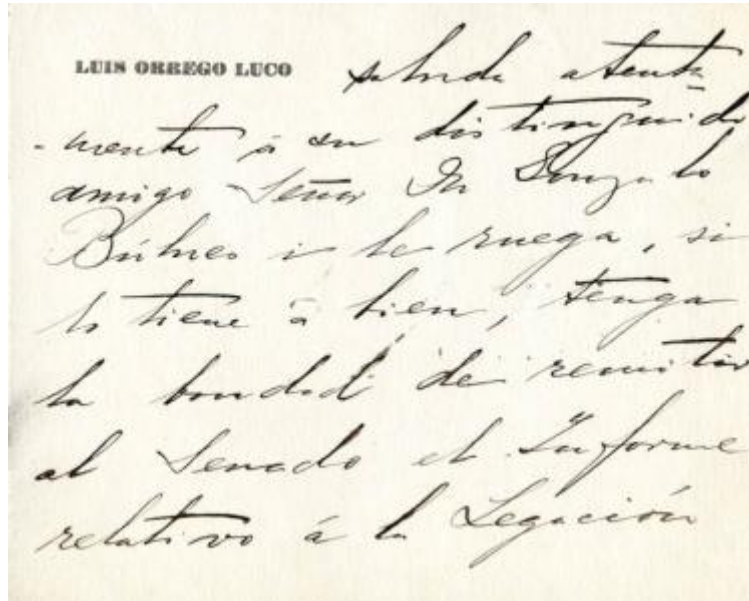 LUIS ORREGO LUCO saluda atenta
-mente á su distinguido
amigo Señor Dn Gonzalo
Búlnes i le ruega, si
lo tiene á bien, tenga
la bondad de remitir
al Senado el Informe
relativo á la Legación